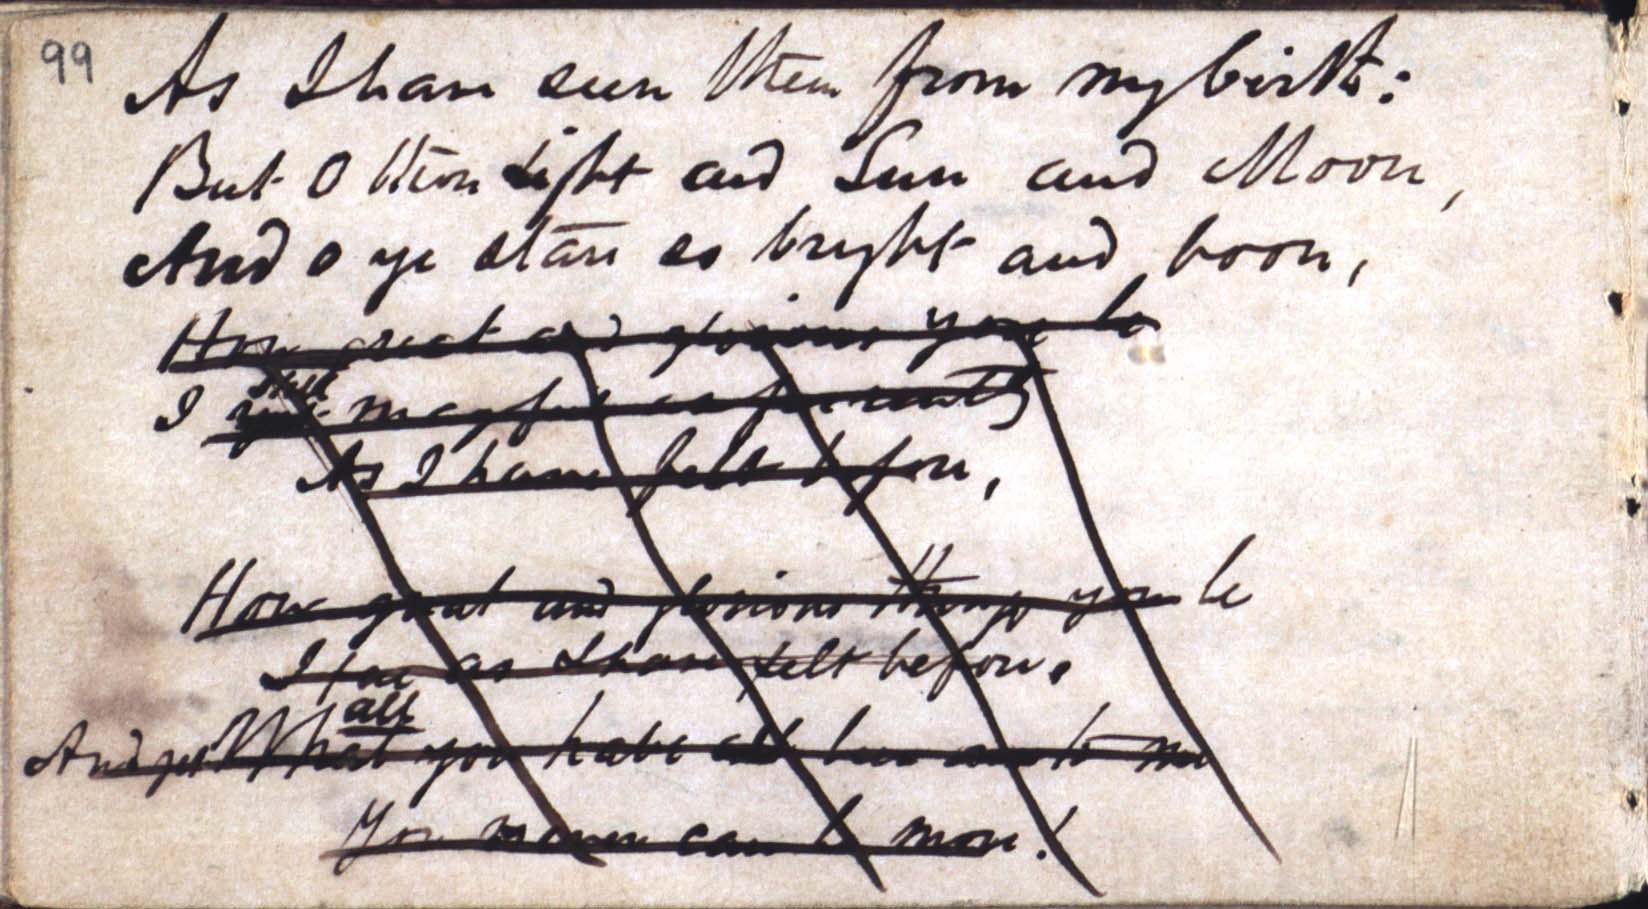 99
As I have seen them from my birth:
But O thou Light and Sun and Moon,
And O ye stars so bright and boon,
How great and glorious you be
still
I may feel as
As I have felt before,
How great and glorious things you be
I fear as I have felt before.
all
And yet What you have all been unto me
You never can be more!